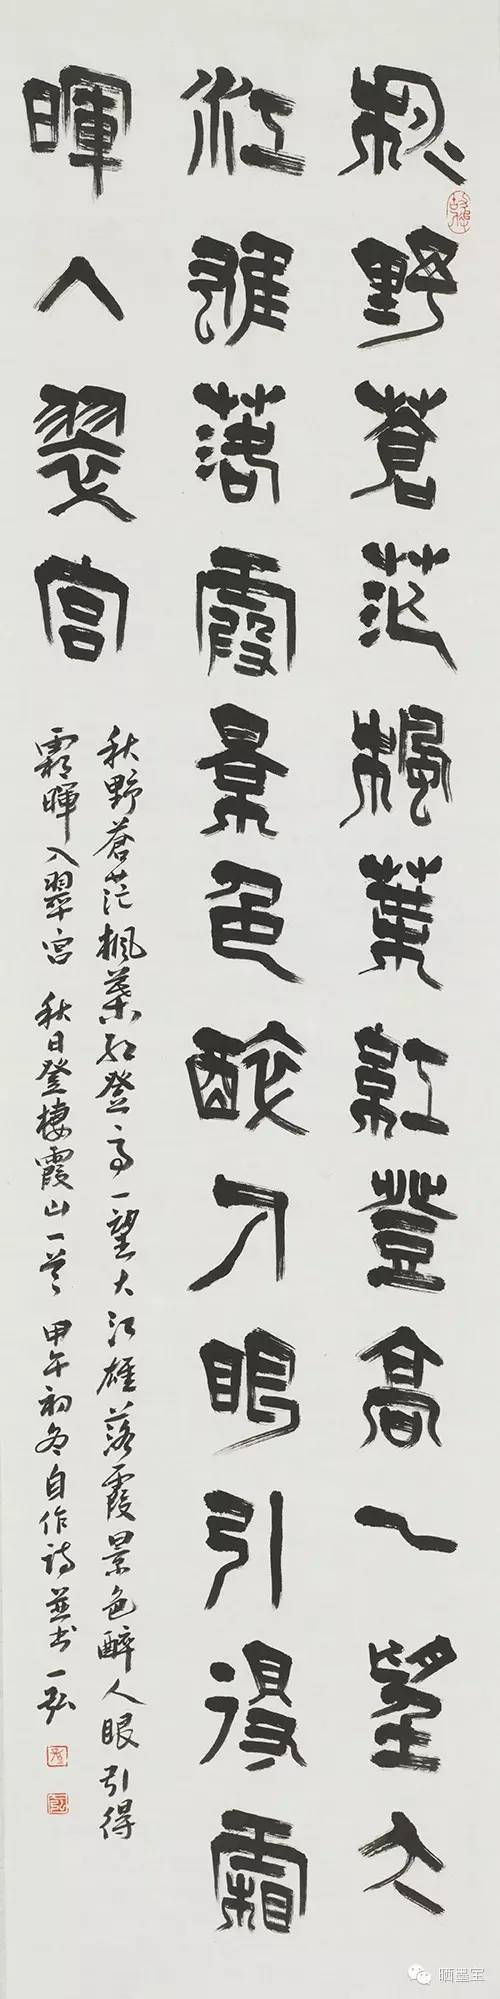 秋野蒼茫楓葉紅登高一望大
江雄落霞景色醉人眼引得霜
暉入翠宮
秋野蒼茫楓葉紅登高一望大江雄落霞景色醉人眼引得
霜暉入翠宮 秋日登棲霞山一首 甲午初冬自作詩並书一弘
晒墨宝